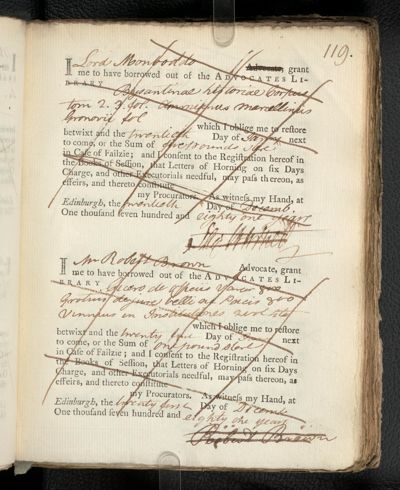 119.
I Lord Monboddo Advocate, grant
me to have borrowed out of the ADVOCATES LI-
BRARY Byzantinae historiae Corpus
tom 2. 3. fol. Ammianus marcellinus
Gronovii fol
which I oblige me to restore
betwixt and the twentieth Day of next
to come, or the Sum of pounds Ster.
in Case of Failzie; and I consent to the Registration hereof in
the Books of Session, that Letters of Horning on six Days
Charge, and other Executorials needful, may pass thereon, as
effeirs, and thereto constitute
my Procurators. As witness my Hand, at
Edinburgh, the twentieth Day of Decemb.
One thousand seven hundred and eighty one years
I Mr Robert Brown Advocate, grant
me to have borrowed out of the ADVOCATES LI-
BRARY Cicero de officiis 8vo
Grotius de jure belli ac Pacis 8vo
Vinnius in Institutiones
which I oblige me to restore
betwixt and the twenty first Day of next
to come, or the Sum of one pound ster.
in Case of Failzie; and I consent to the Registration hereof in
the Books of Session, that Letters of Horning on six Days
Charge, and other Executorials needful, may pass thereon, as
effeirs, and thereto constitute
my Procurators. As witness my Hand, at
Edinburgh, the twenty first Day of Decemb
One thousand seven hundred and eighty one years
Robert Brown